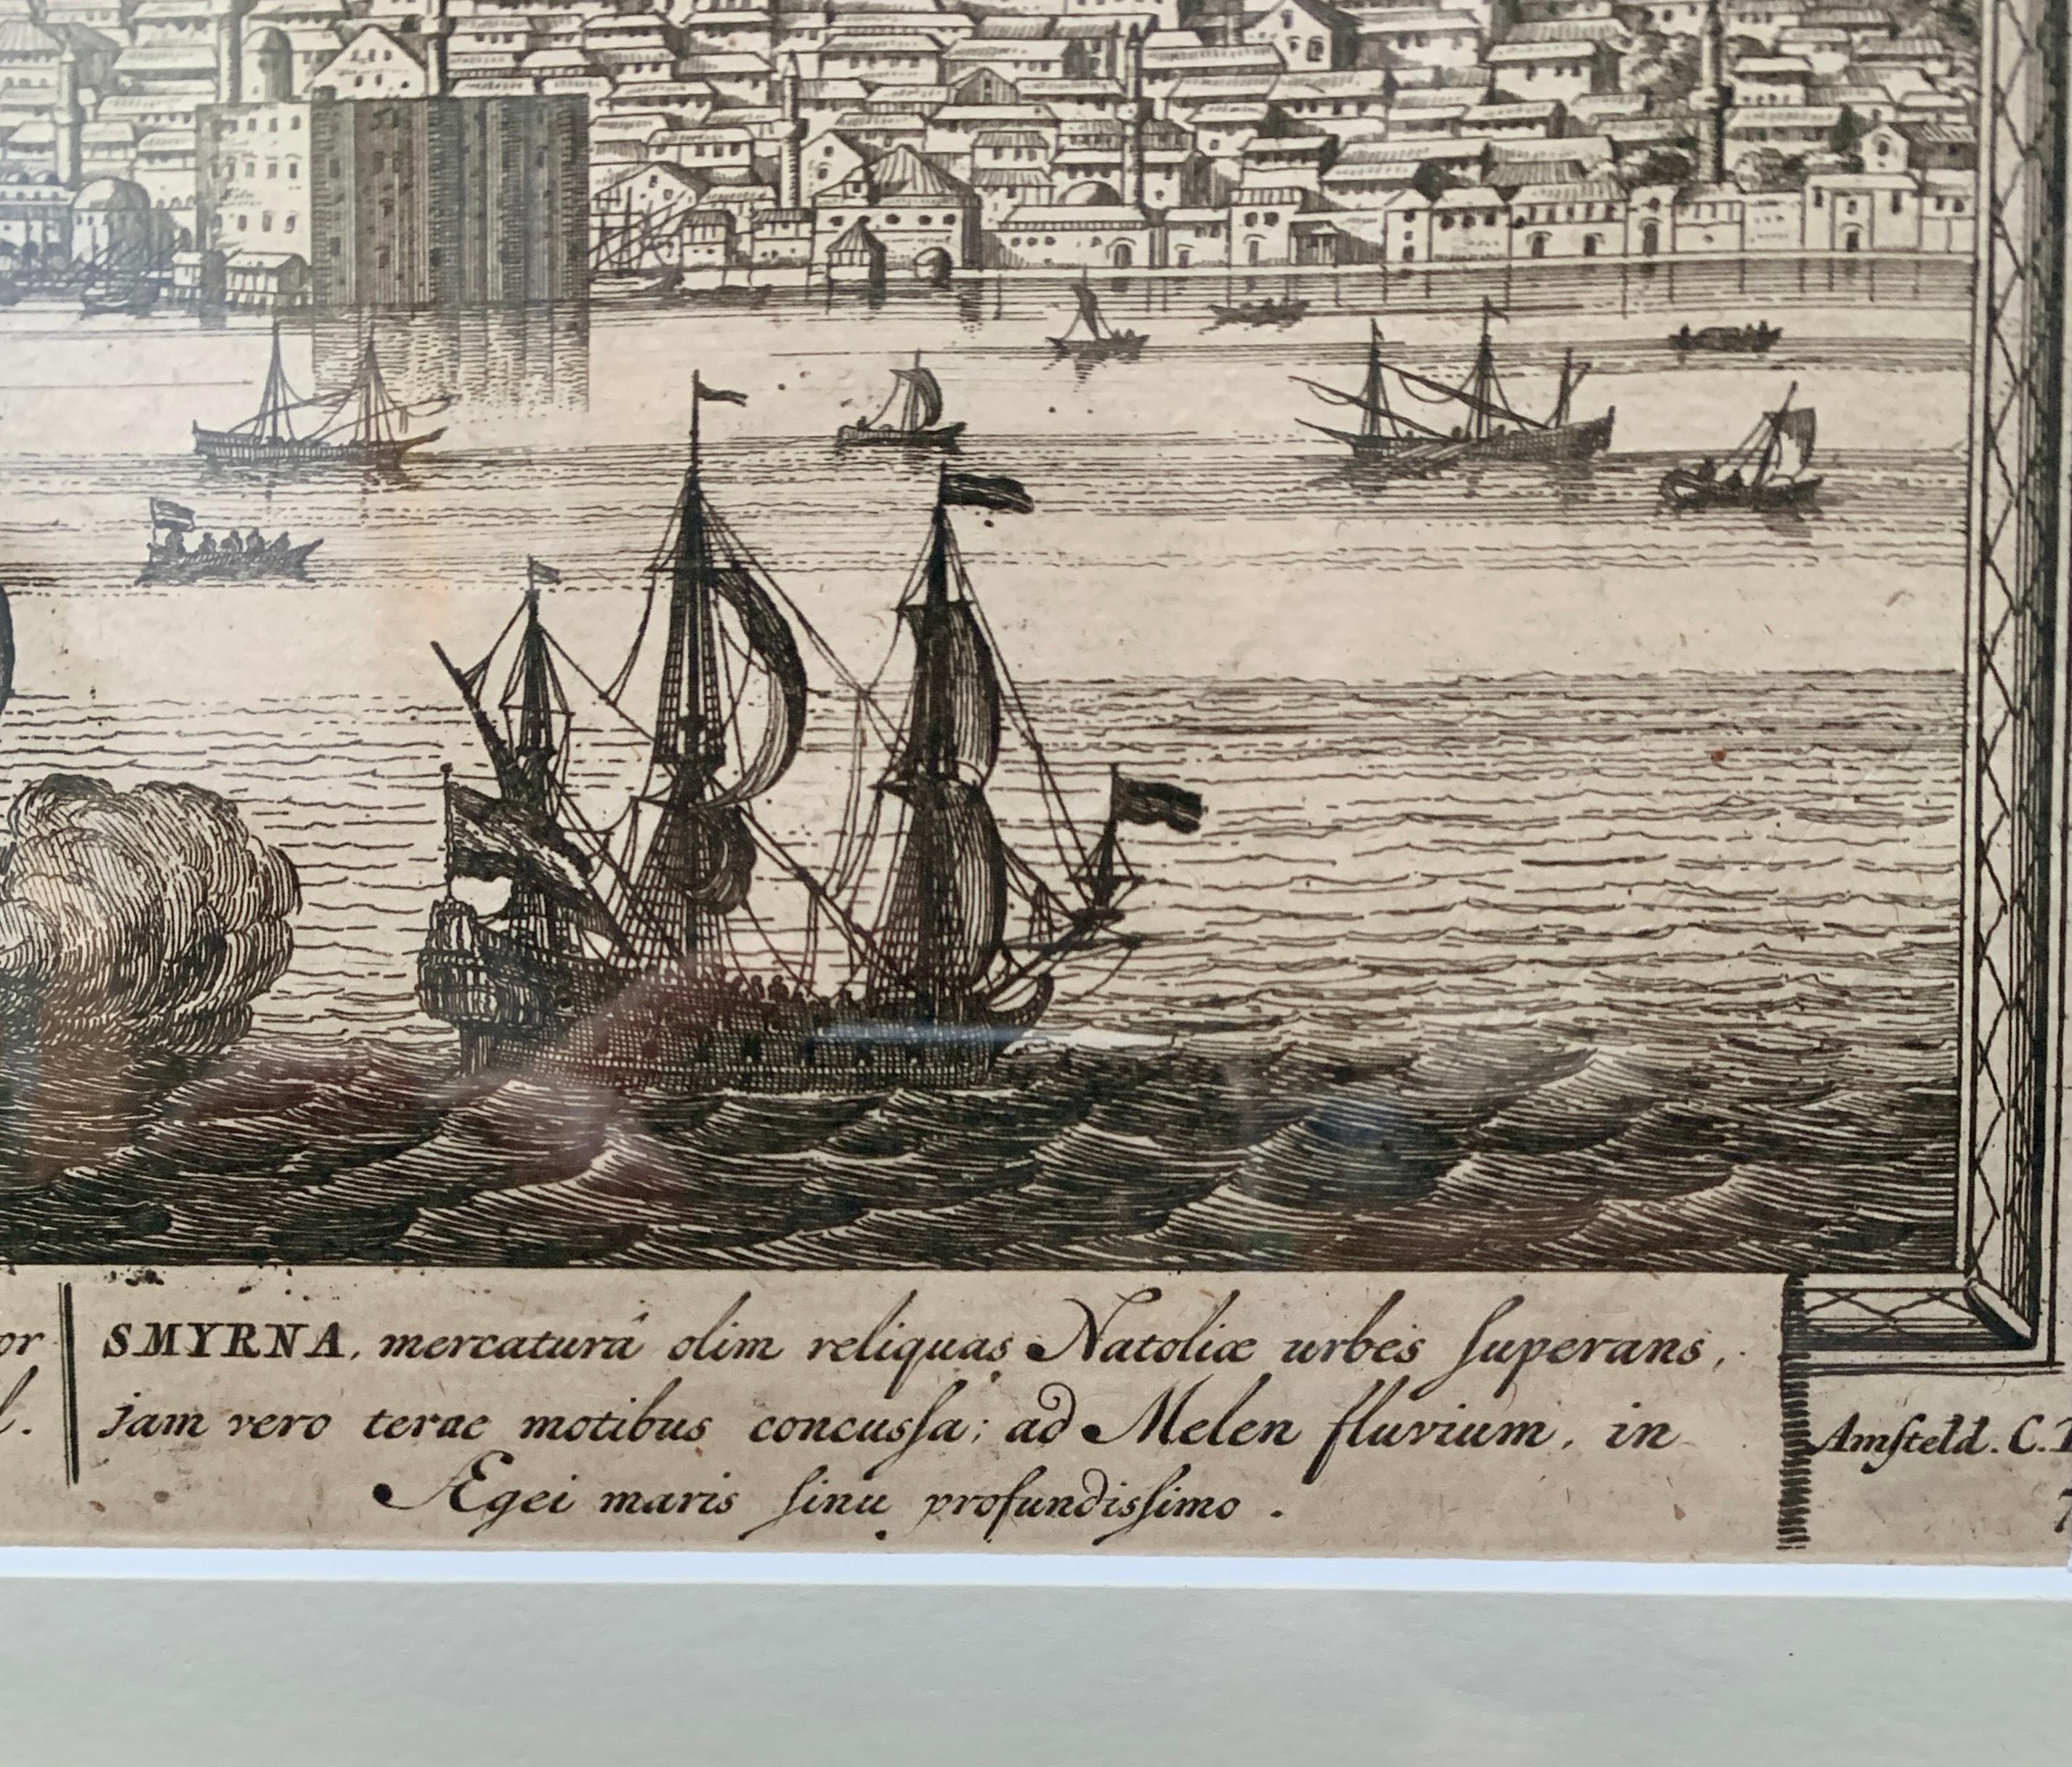 SMYRNA, mercaturâ olim reliquas Natoliæ urbes ſuperans,
jam vero terræ motibus concuſſa; ad Melen fluvium, in
Ægei maris ſinu profundiſſimo.
Amſteld. C.